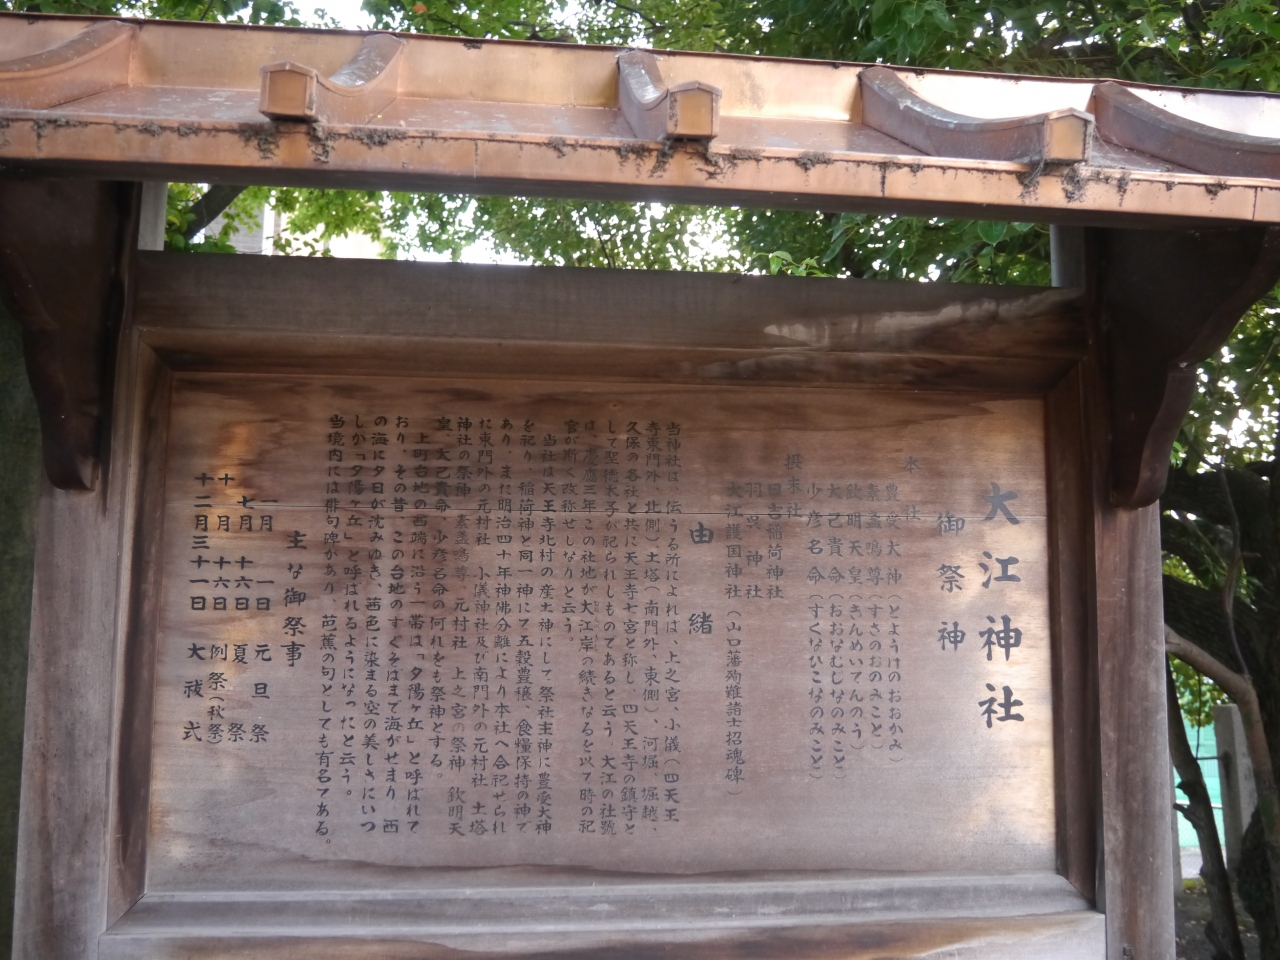 大江神社
御祭神
本社
豊受大神(とようけのおおかみ)
素盞嗚尊(すさのおのみこと)
欽明天皇(きんめいてんのう)
大己貴命(おおなむじなのみこと)
少彦名命(すくなひこなのみこと)
摂末社
日吉稲荷神社
羽呉神社
大江護国神社(山口藩殉難諸士招魂碑)
由緒
当神社は、伝うる所によれば、上之宮、小儀(四天王
寺東門外、北側)土塔(南門外、東側)、河堀、堀越、
久保の各社と共に天王寺七宮と称し、四天王寺の鎮守と
して聖徳太子が祀られしものであると云う。大江の社號
は、慶應三年この社地が大江岸の続きなるを以て時の祀
官が斯く改称せしなりと云う。
当社は天王寺北村の産土神にして祭社主神に豊受大神
を祀り、稲荷神と同一神にて五穀豊穣、食糧保持の神で
あり、また明治四十年神佛分離により本社へ合祀せられ
た東門外の元村社 小儀神社及び南門外の元村社 土塔
神社の祭神 素盞鳴尊、元村社 上之宮の祭神 欽明天
皇、大己貴命、少彦名命の何れをも祭神とする。
上町台地の西端に沿う一帯は「夕陽ヶ丘」と呼ばれて
おり、その昔、この台地のすぐそばまで海がせまり、西
の海に夕日が沈みゆき、茜色に染まる空の美しさにいつ
しか「夕陽ヶ丘」と呼ばれるようになったと云う。
当境内には俳句碑があり、芭蕉の句としても有名である。
主な御祭事
一月 一日 元旦祭
七月 十六日 夏祭
十月 十六日 例祭(秋祭)
十二月三十一日 大祓式